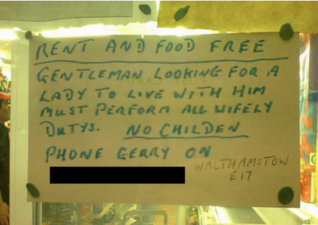 RENT AND FOOD FREE
GENTLEMAN LOOKING FOR A
LADY TO LIVE WITH HIM
MUST PERFORM ALL WIFELY
DUTYS. NO CHILDEN
PHONE GERRY ON
WALTHAMSTOW
E17